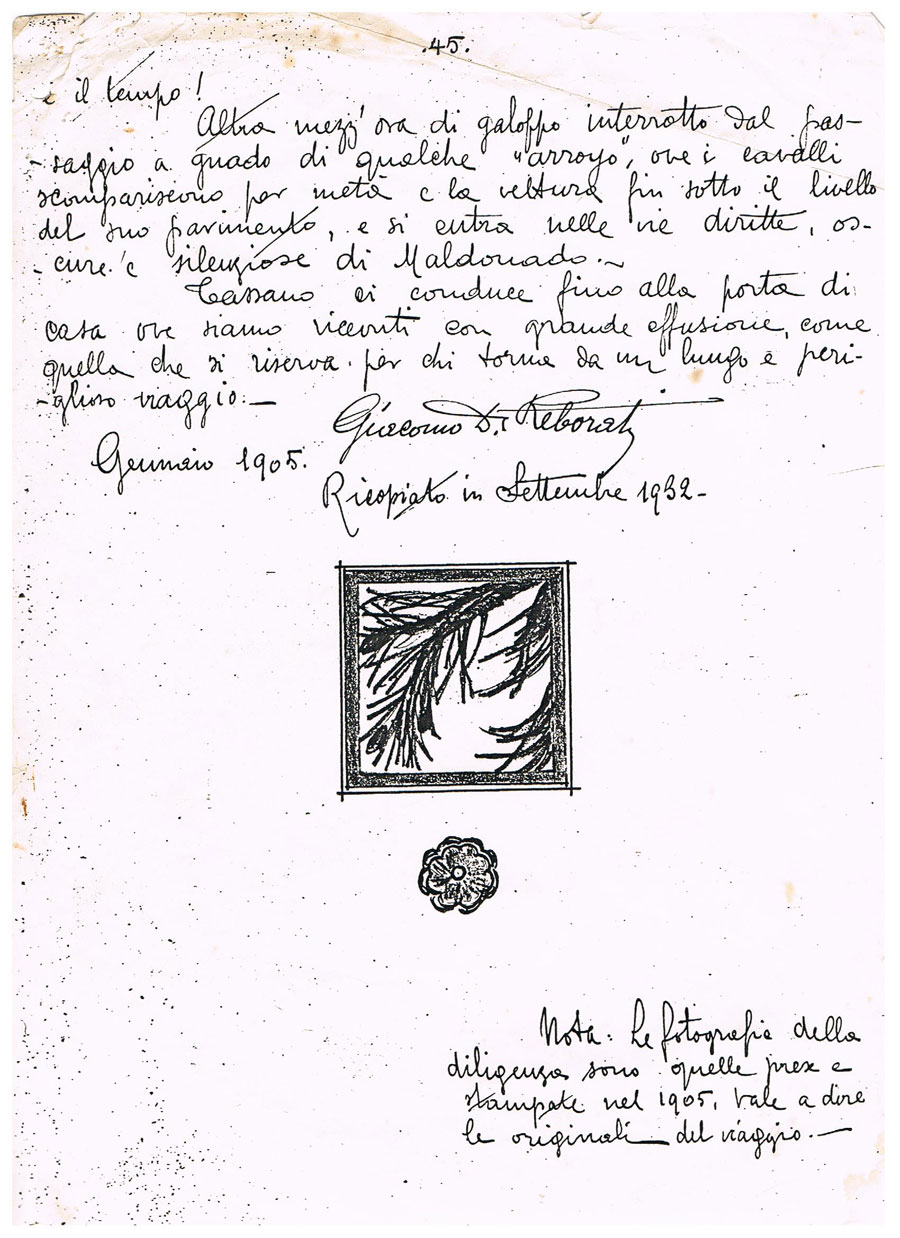 .45.
e il tempo!
Altra mezz'ora di galoppo interrotto dal pas-
-saggio a guado di qualche "arroyo", ove i cavalli
scompariscono per metà e la vettura fin sotto il livello
del suo pavimento, e si entra nelle vie diritte, os-
-cure e silenziose di Maldonado.~
Cassano ci conduce fino alla porta di
casa ove siamo ricevuti con grande effusione, come
quella che si riserva per chi torna da un lungo e peri-
-glioso viaggio.—
Giacomo D. Reborati
Gennaio 1905.
Ricopiato in Settembre 1932-
Nota. Le fotografie della
diligenza sono quelle prese e
stampate nel 1905, vale a dire
le originali del viaggio.—